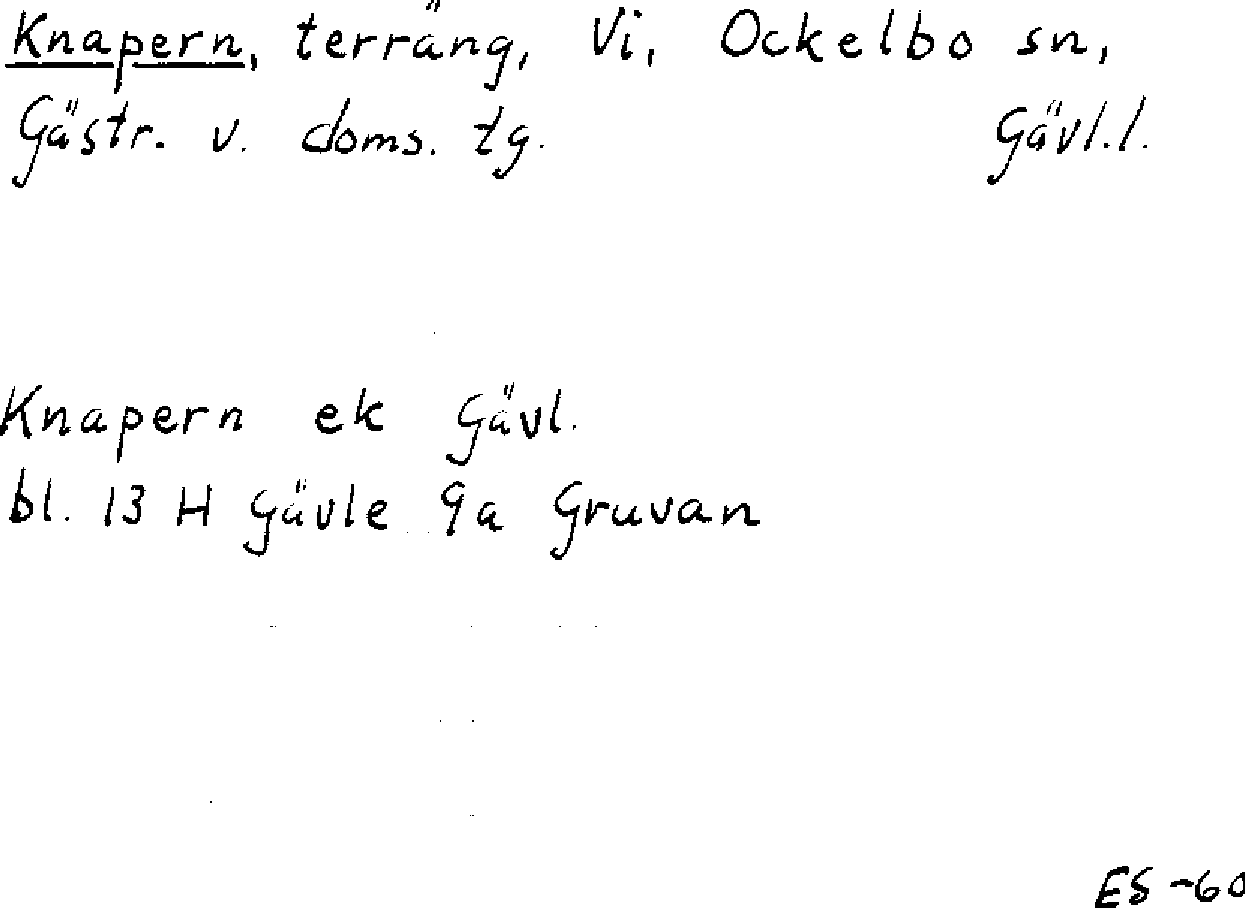 Knapern, terräng, Vi, Ockelbo sn,
Gästr. v. doms. tg. Gävl.l.
Knapern ek Gävl.
bl. 13 H Gävle 9a Gruvan
ES -60